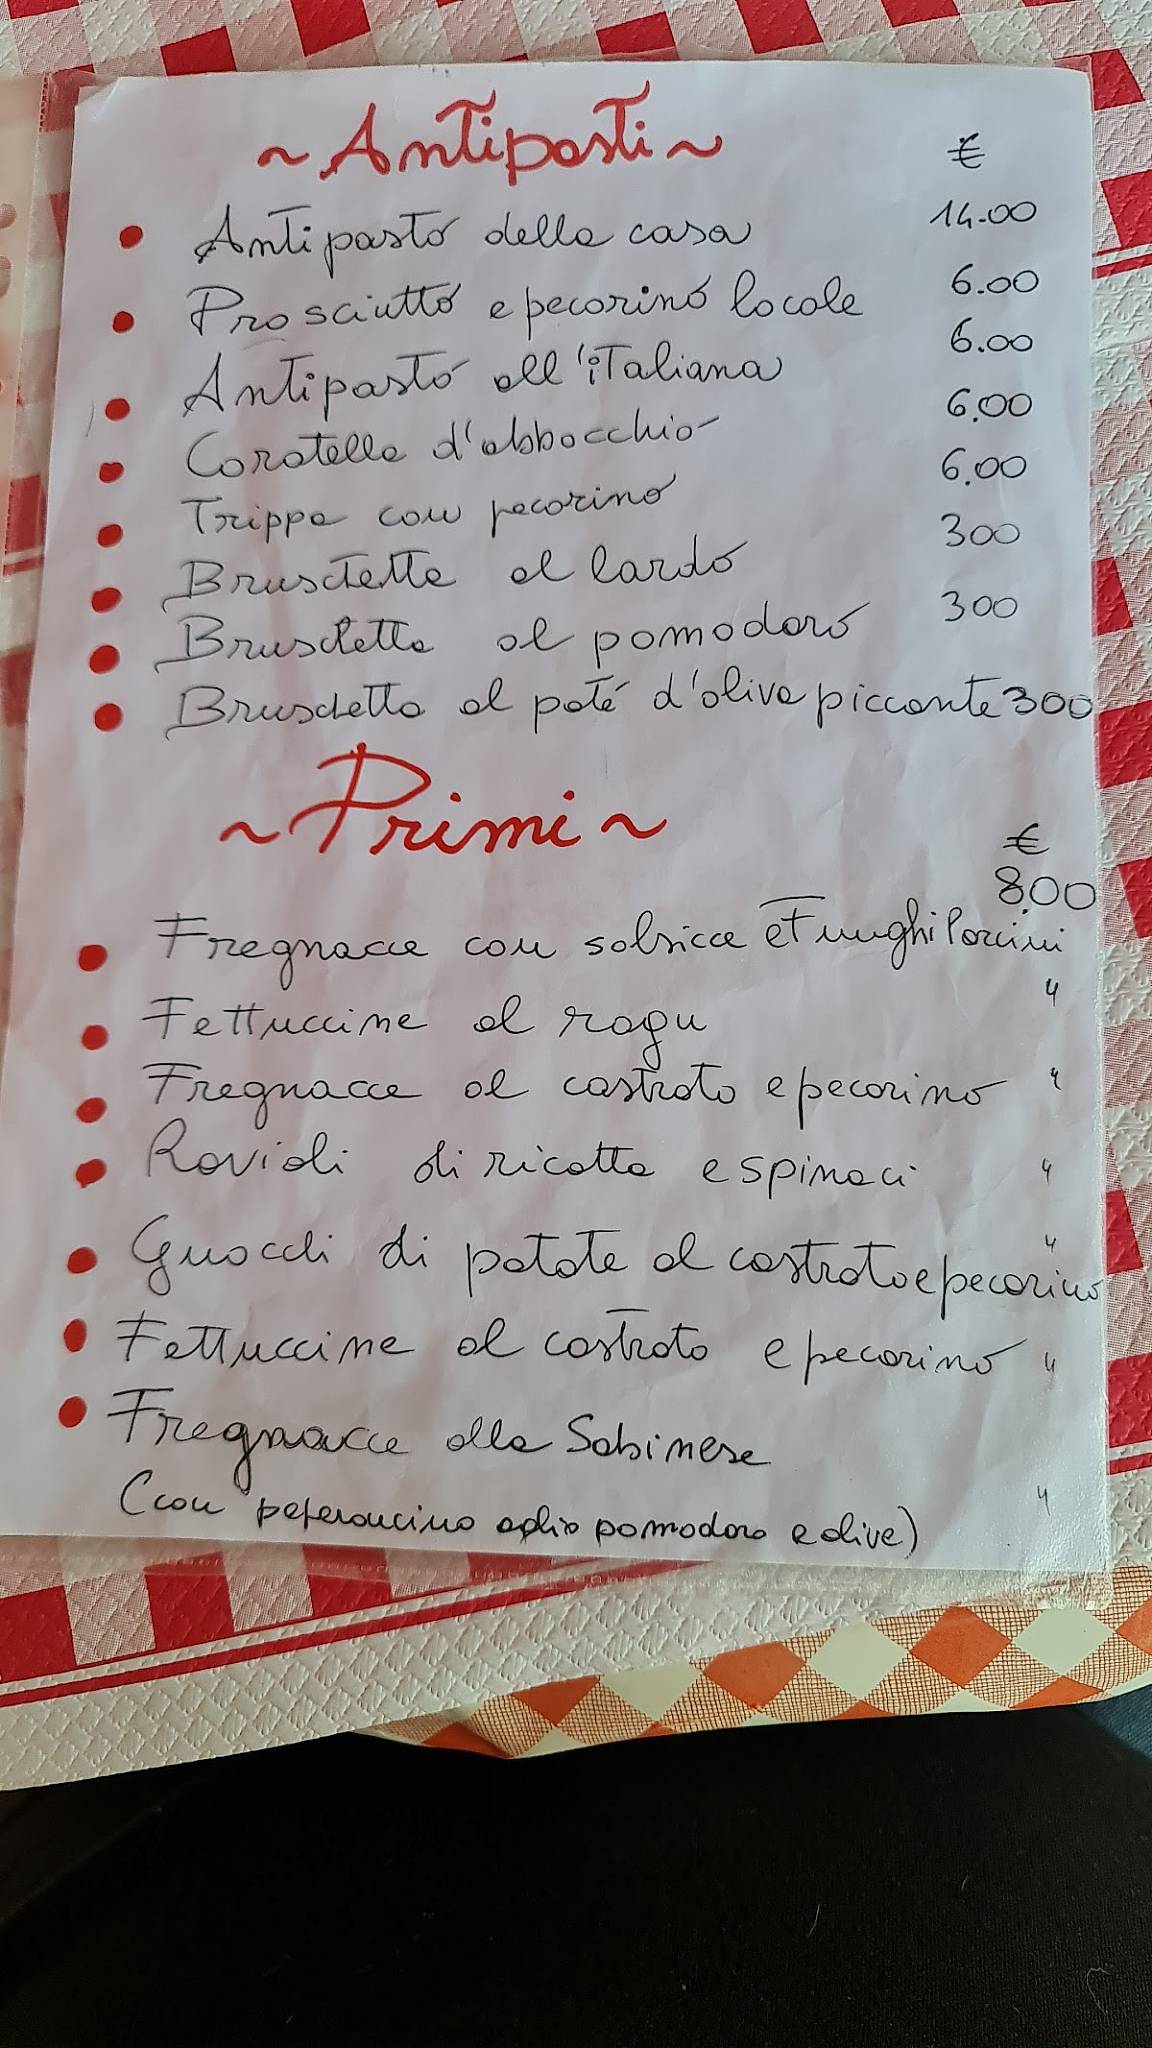 ~Antipasti~ €
Antipasto della casa 14.00
Prosciutto e pecorino locale 6.00
Antipasto all'italiana 6.00
Coratella d'abbacchio 6.00
Trippa con pecorino 6.00
Bruschetta al lardo 300
Bruschetta al pomodoro 300
Bruschetta al paté d'oliva piccante 300
~Primi~ €
8.00
Fregnacce con salsicce e Funghi Porcini
Fettuccine al ragu "
Fregnacce al castrato e pecorino "
Ravioli di ricotta e spinaci "
Gnocchi di patate al castrato e pecorino "
Fettuccine al castrato e pecorino "
Fregnacce alla Sabinese
(con peperoncino aglio pomodoro e olive) "